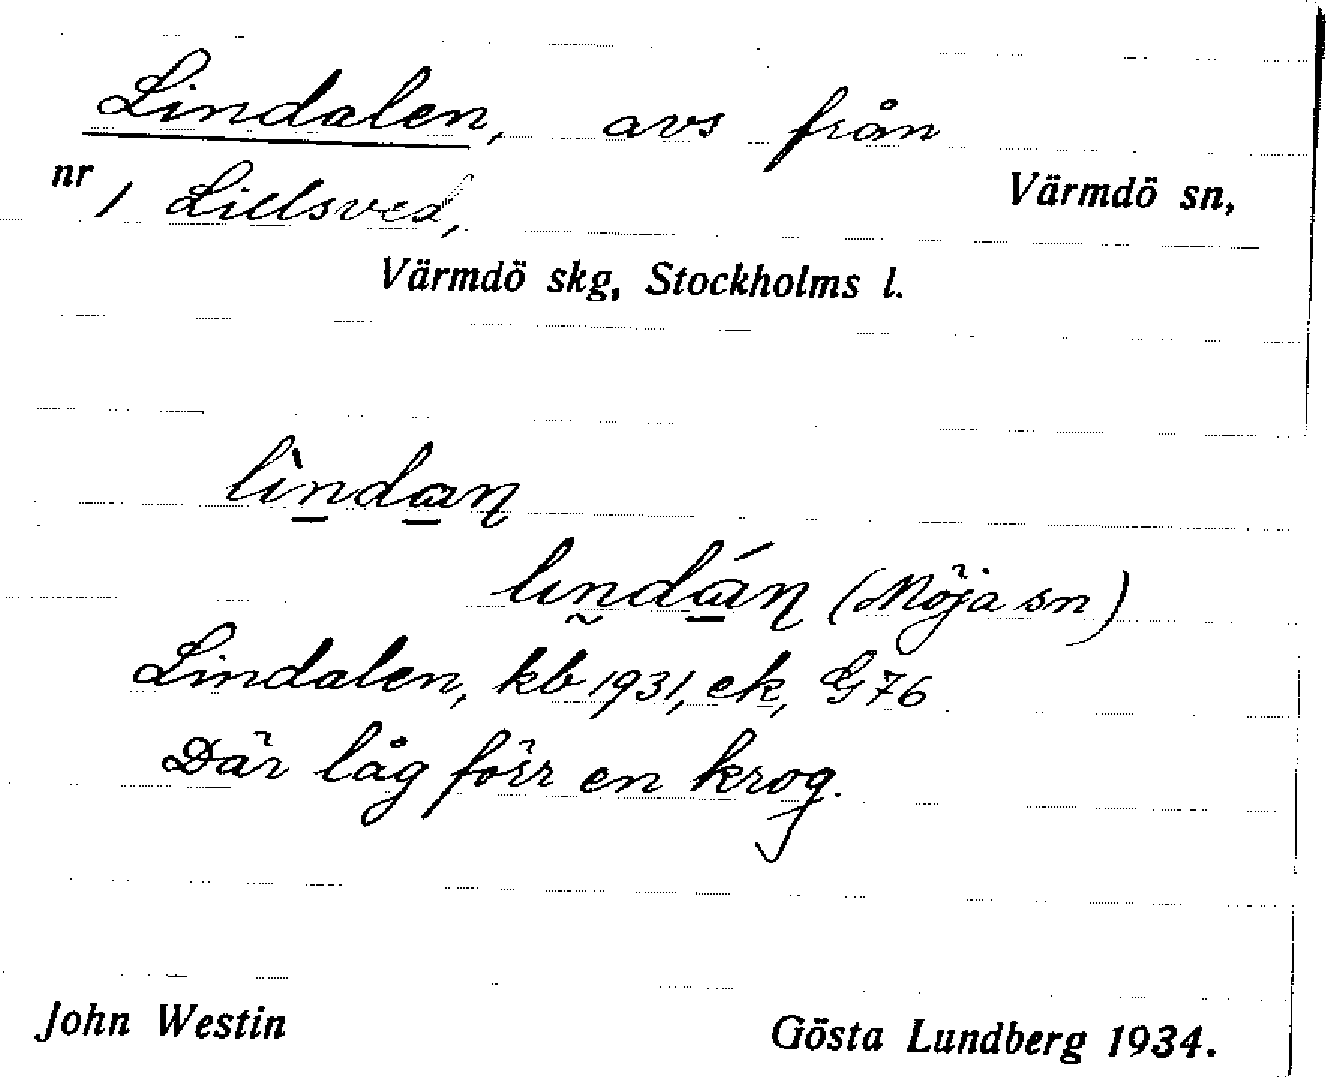 Lindalen, avs från
nr 1 Lillsved, Värmdö sn,
Värmdö skg, Stockholms l.
lìndaɳ
lındáɳ (Möja sn)
Lindalen, kb 1931, ek, G76
Där låg förr en krog.
John Westin Gösta Lundberg 1934.